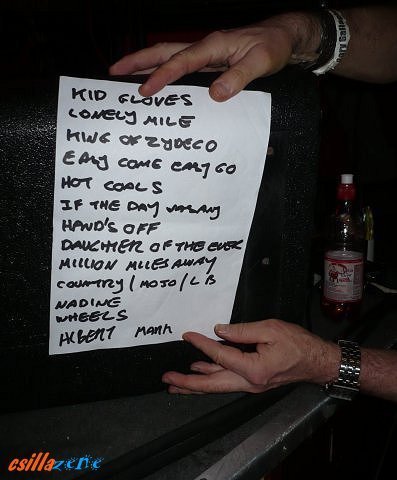 KID GLOVES
LONELY MILE
KING OF ZYDECO
EASY COME EASY GO
HOT COALS
IF THE DAY
HAND'S OFF
DAUGHTER OF THE EVER
MILLION MILES AWAY
COUNTRY / MOJO / LB
NADINE
WHEELS
MARK
csillazene